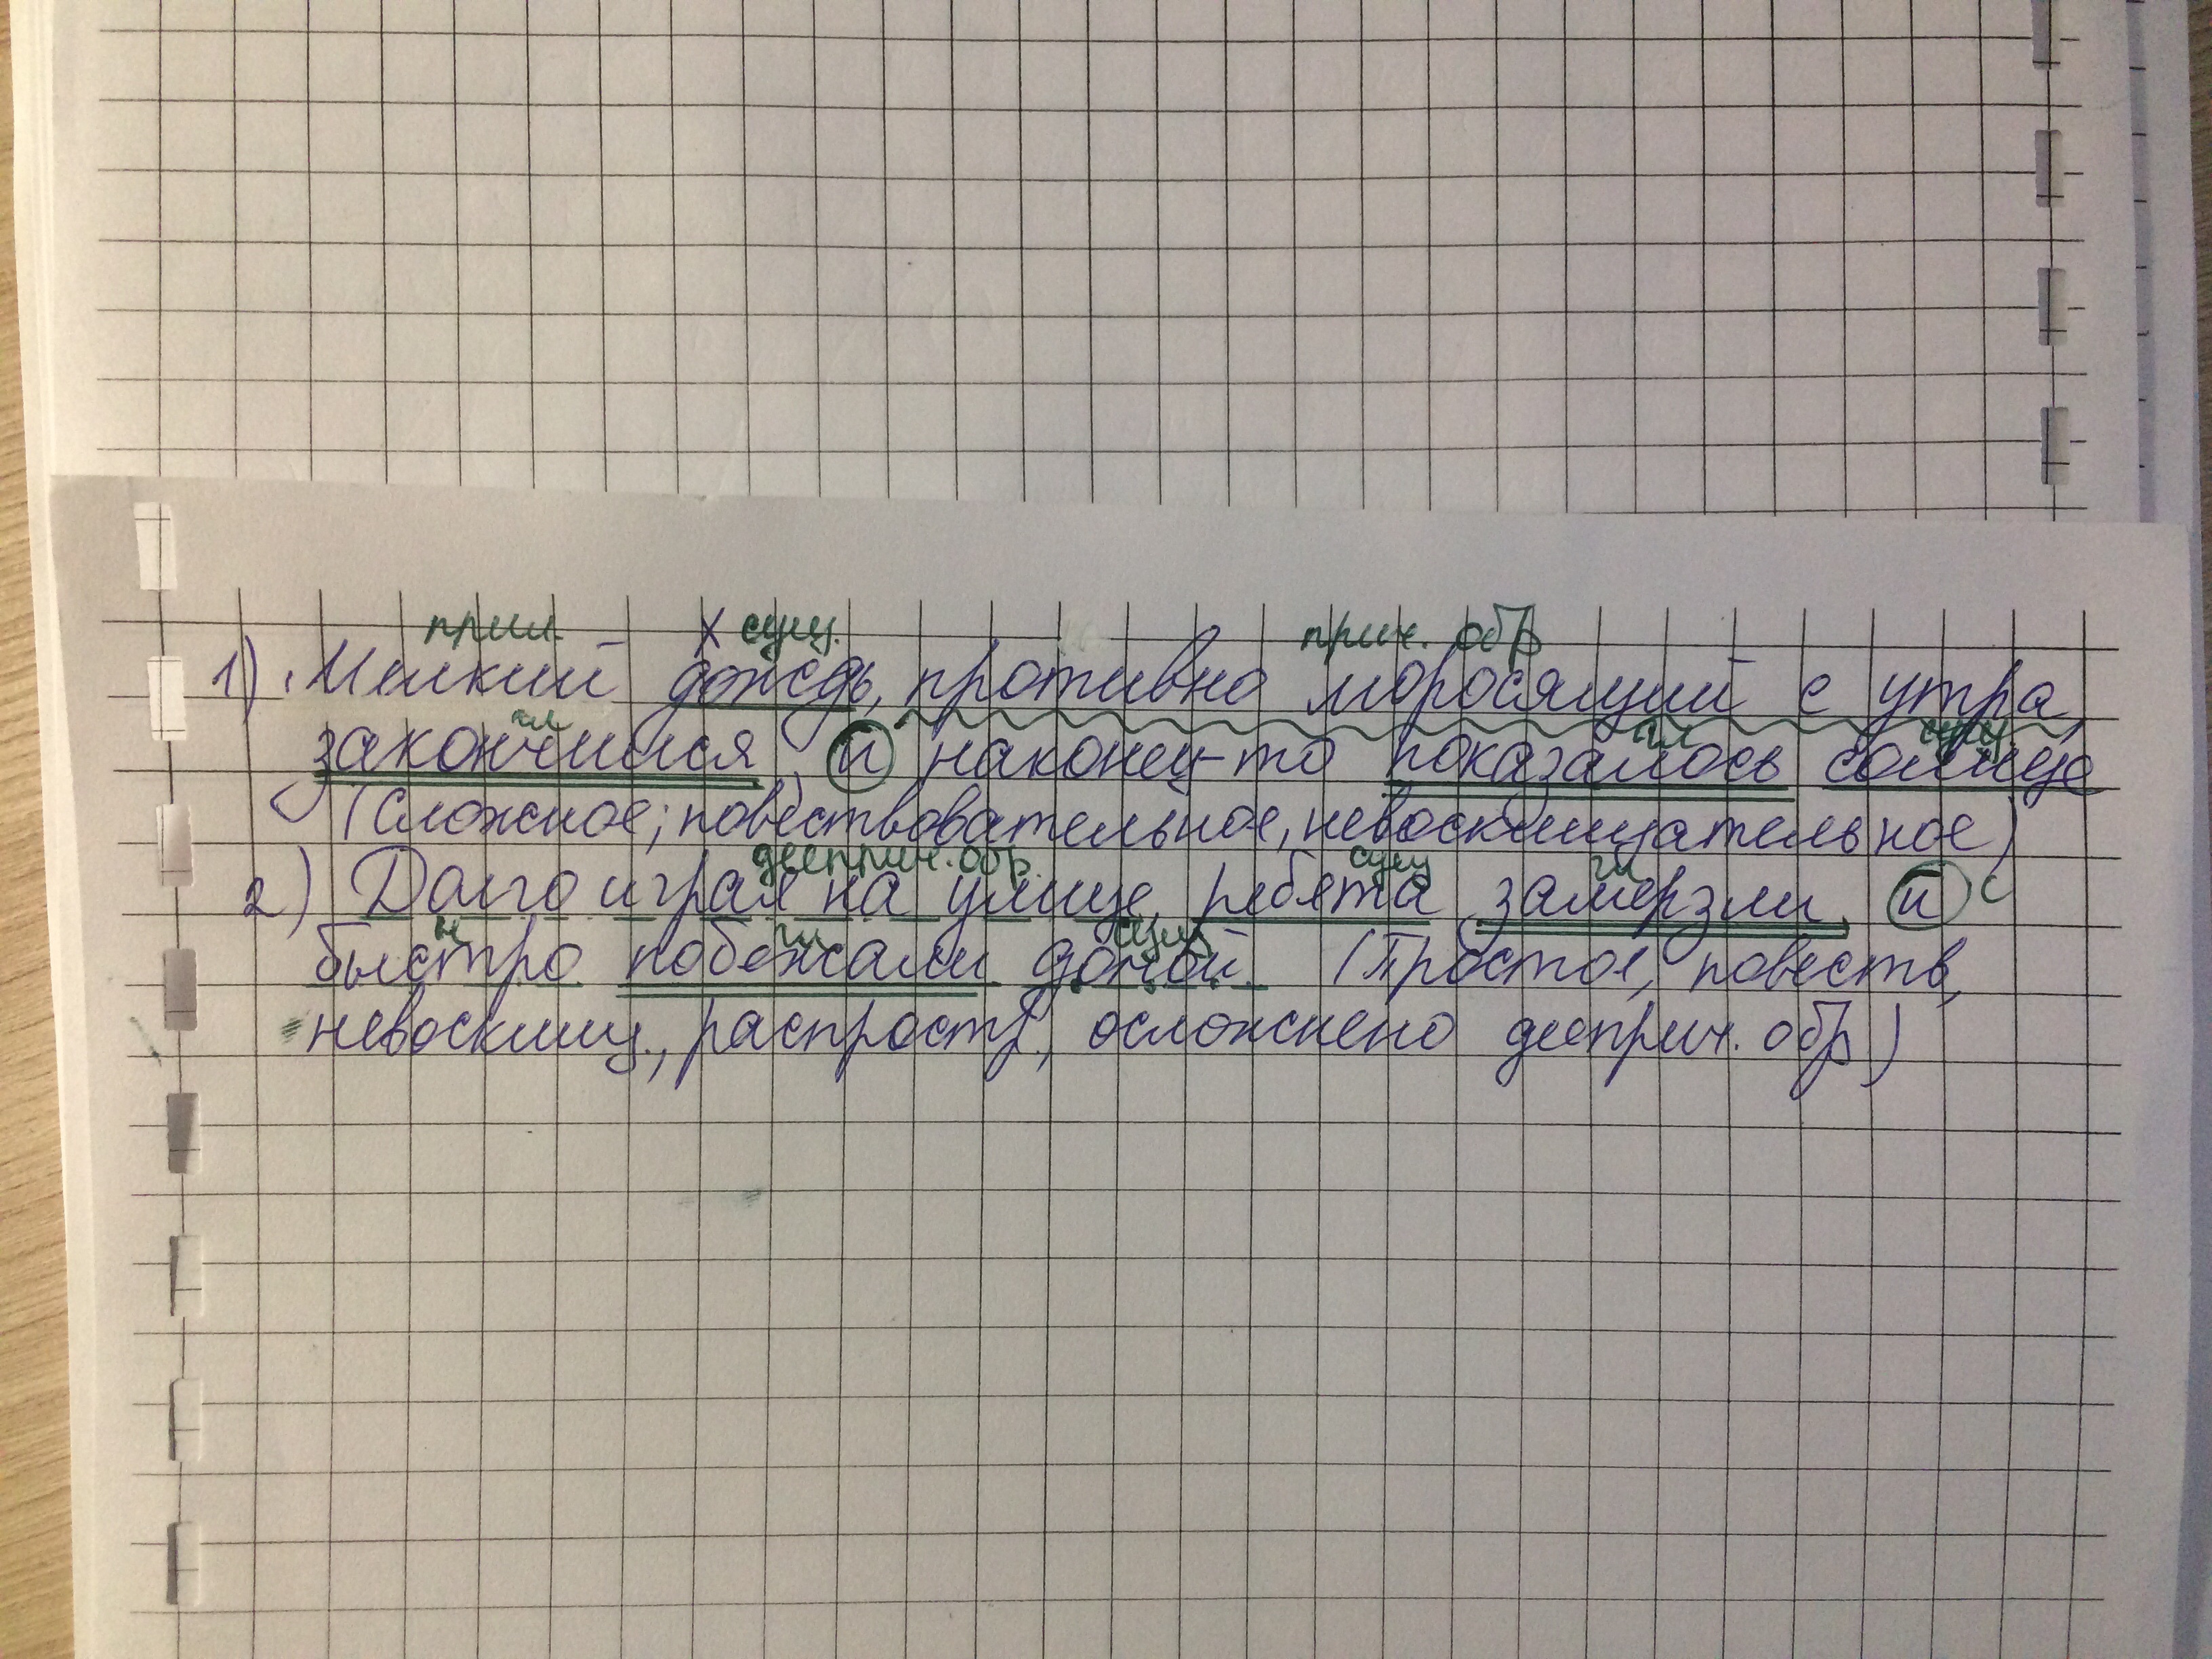 прил. X сущ. прич. обр
1) Мелкий дождь, противно моросящий с утра,
гл гл сущ
закончился, и наконец-то показалось солнце
(Сложное; повествовательное, невосклицательное)
дееприч. обр. сущ гл
2) Долго играя на улице, ребята замерзли и
н гл сущ
быстро побежали домой. (Простое, повеств,
невосклиц., распростр, осложнено дееприч. обр)